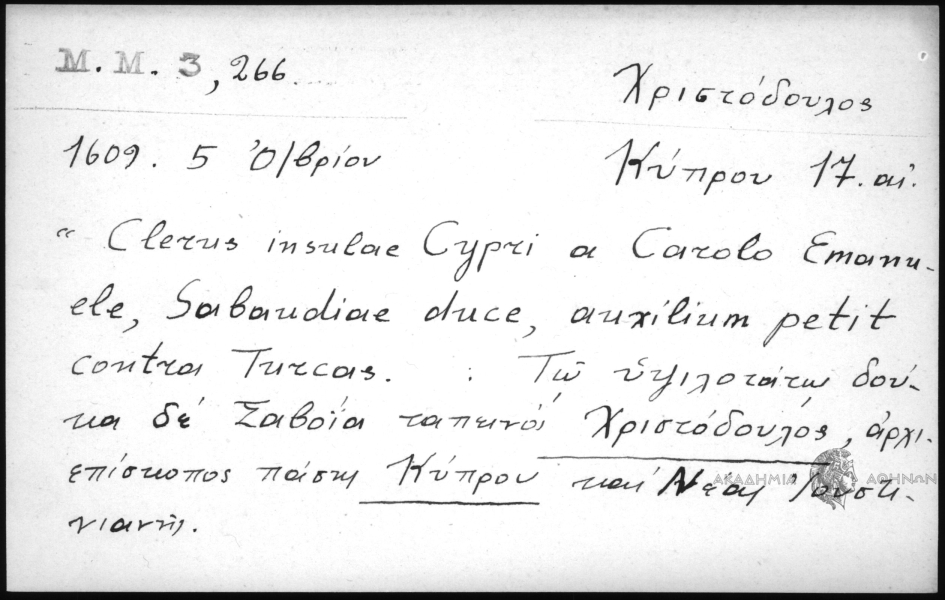 M. M. 3, 266
Χριστόδουλος
1609. 5 Ὀ/βρίου
Κύπρου 17. αἰ.
“ Clerus insulae Cypri a Carolo Emanu-
ele, Sabaudiae duce, auxilium petit
contra Turcas. . : Τῶ ὑψιλοτάτω δού-
κα δέ Σαβοΐα ταπεινός Χριστόδουλος, ἀρχι-
επίσκοπος πάσης Κύπρου καί Νέας Ἰουστι-
νιανῆς.
ΑΚΑΔΗΜΙΑ ΑΘΗΝΩΝ